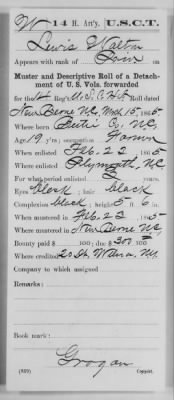 W 14 H. Art'y. U.S.C.T.
Lewis Walton
Appears with rank of Priv
Muster and Descriptive Roll of a Detach-
ment of U. S. Vols. forwarded
for the 14 Reg't U.S.C.H.A. Roll dated
New Berne N.C. Mch 15, 1865.
Where born Bertie Co., N.C.
Age 19 y'rs; occupation Farmer
When enlisted Feb. 22, 1865
Where enlisted Plymouth, N.C.
For what period enlisted 3 years.
Eyes black; hair black
Complexion black; height 5 ft. 6 in.
When mustered in Feb. 22, 1865
Where mustered in New Berne, N.C.
Bounty paid $ 100; due $ 300 100
Where credited
Company to which assigned
Remarks:
Book mark:
Grogan
(339) Copyist.